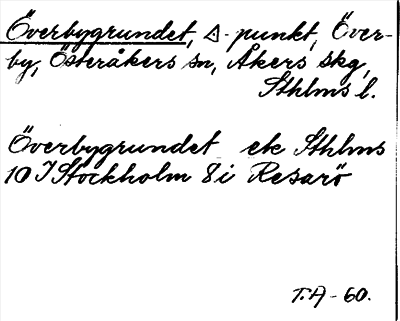 Överbygrundet, △-punkt, Över-
by, Österåkers sn, Åkers skg,
Sthlms l.
Överbygrundet ek Sthlms
10 I Stockholm 8 i Resarö
T.A-60.